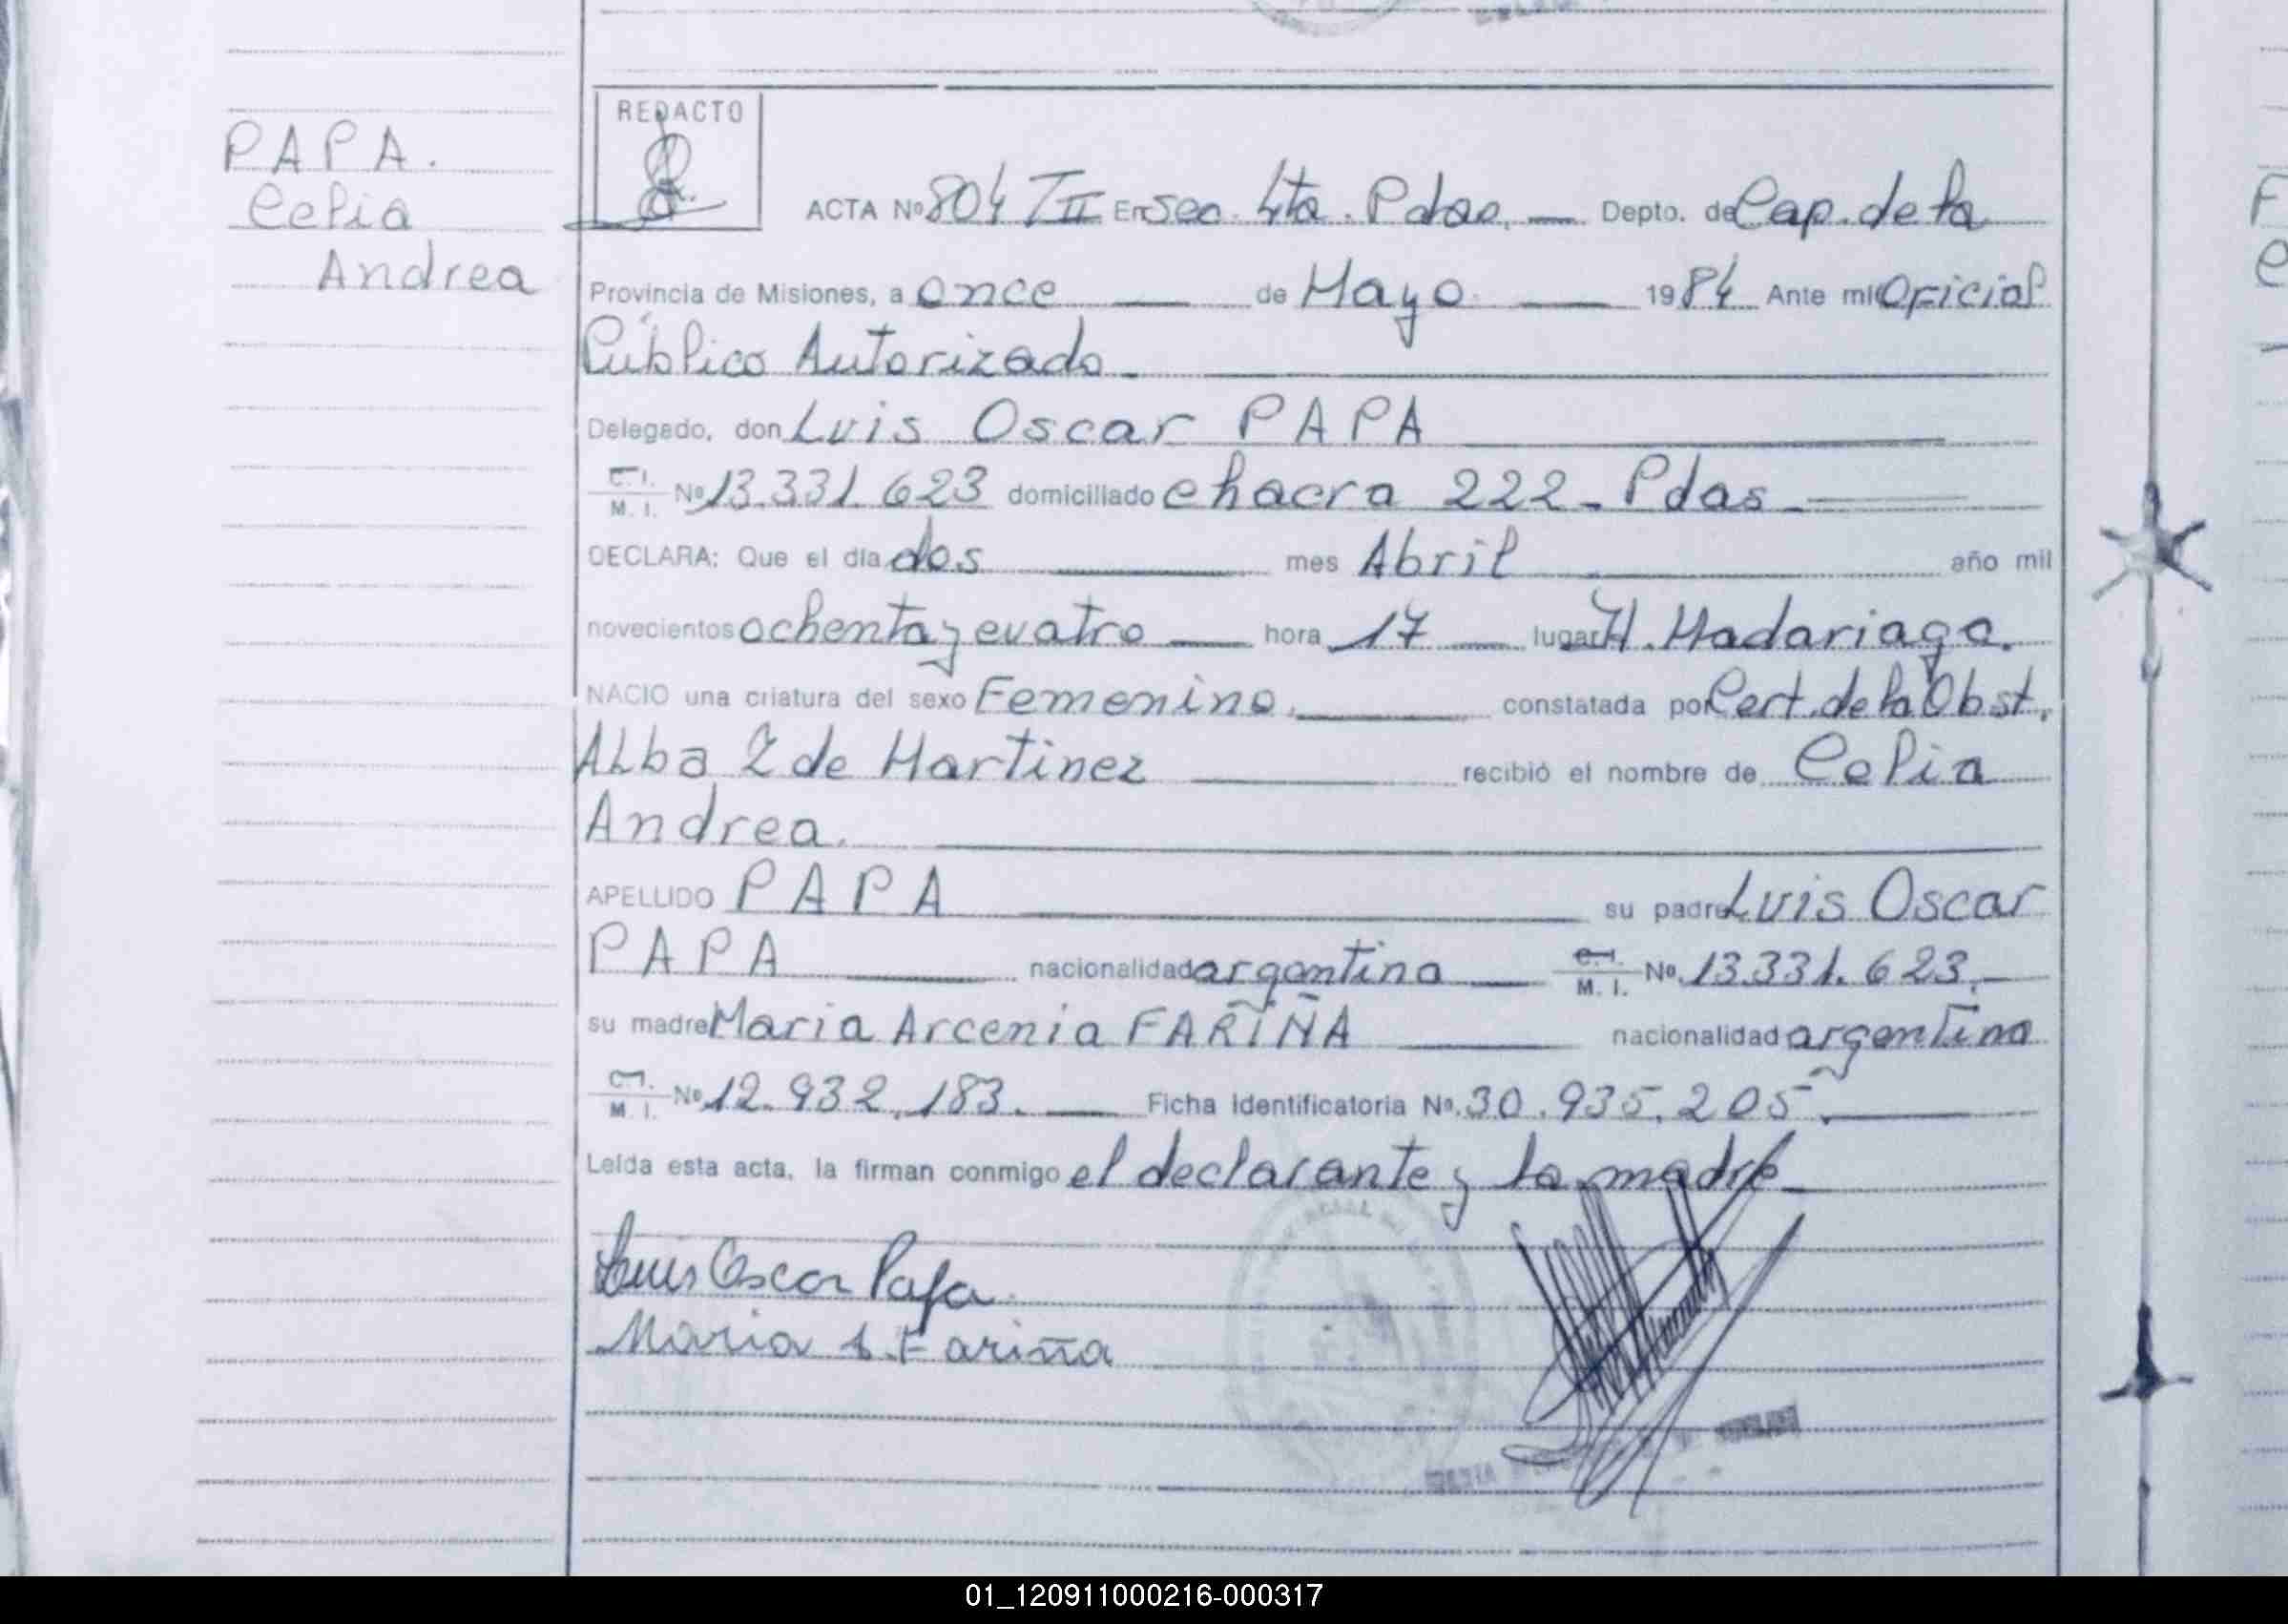 PAPA.
Celia
Andrea
REDACTO
ACTA Nº 804 TII En sec. 4ta. Pdas, Depto. de Cap. de la
Provincia de Misiones, a once de Mayo 1984 Ante mi Oficial
Público Autorizado.
Delegado, don Luis Oscar PAPA
C.I.
M. I. Nº 13.331.623 domiciliado chacra 222 - Pdas
DECLARA: Que el día dos mes Abril año mil
novecientos ochenta y cuatro hora 17 lugar H. Madariaga.
NACIO una criatura del sexo Femenino. constatada por Cert. de la Obst.
Alba Z de Martinez recibió el nombre de Celia
Andrea.
APELLIDO PAPA su padre Luis Oscar
PAPA nacionalidad argentina C.I.
M. I. Nº 13.331.623.
su madre Maria Arcenia FARIÑA nacionalidad argentina
C.I.
M. I. Nº 12.932.183. Ficha Identificatoria Nº 30.935.205.
Leída esta acta, la firman conmigo el declarante y la madre
Luis Oscar Papa
Maria A. Fariña
01_120911000216-000317